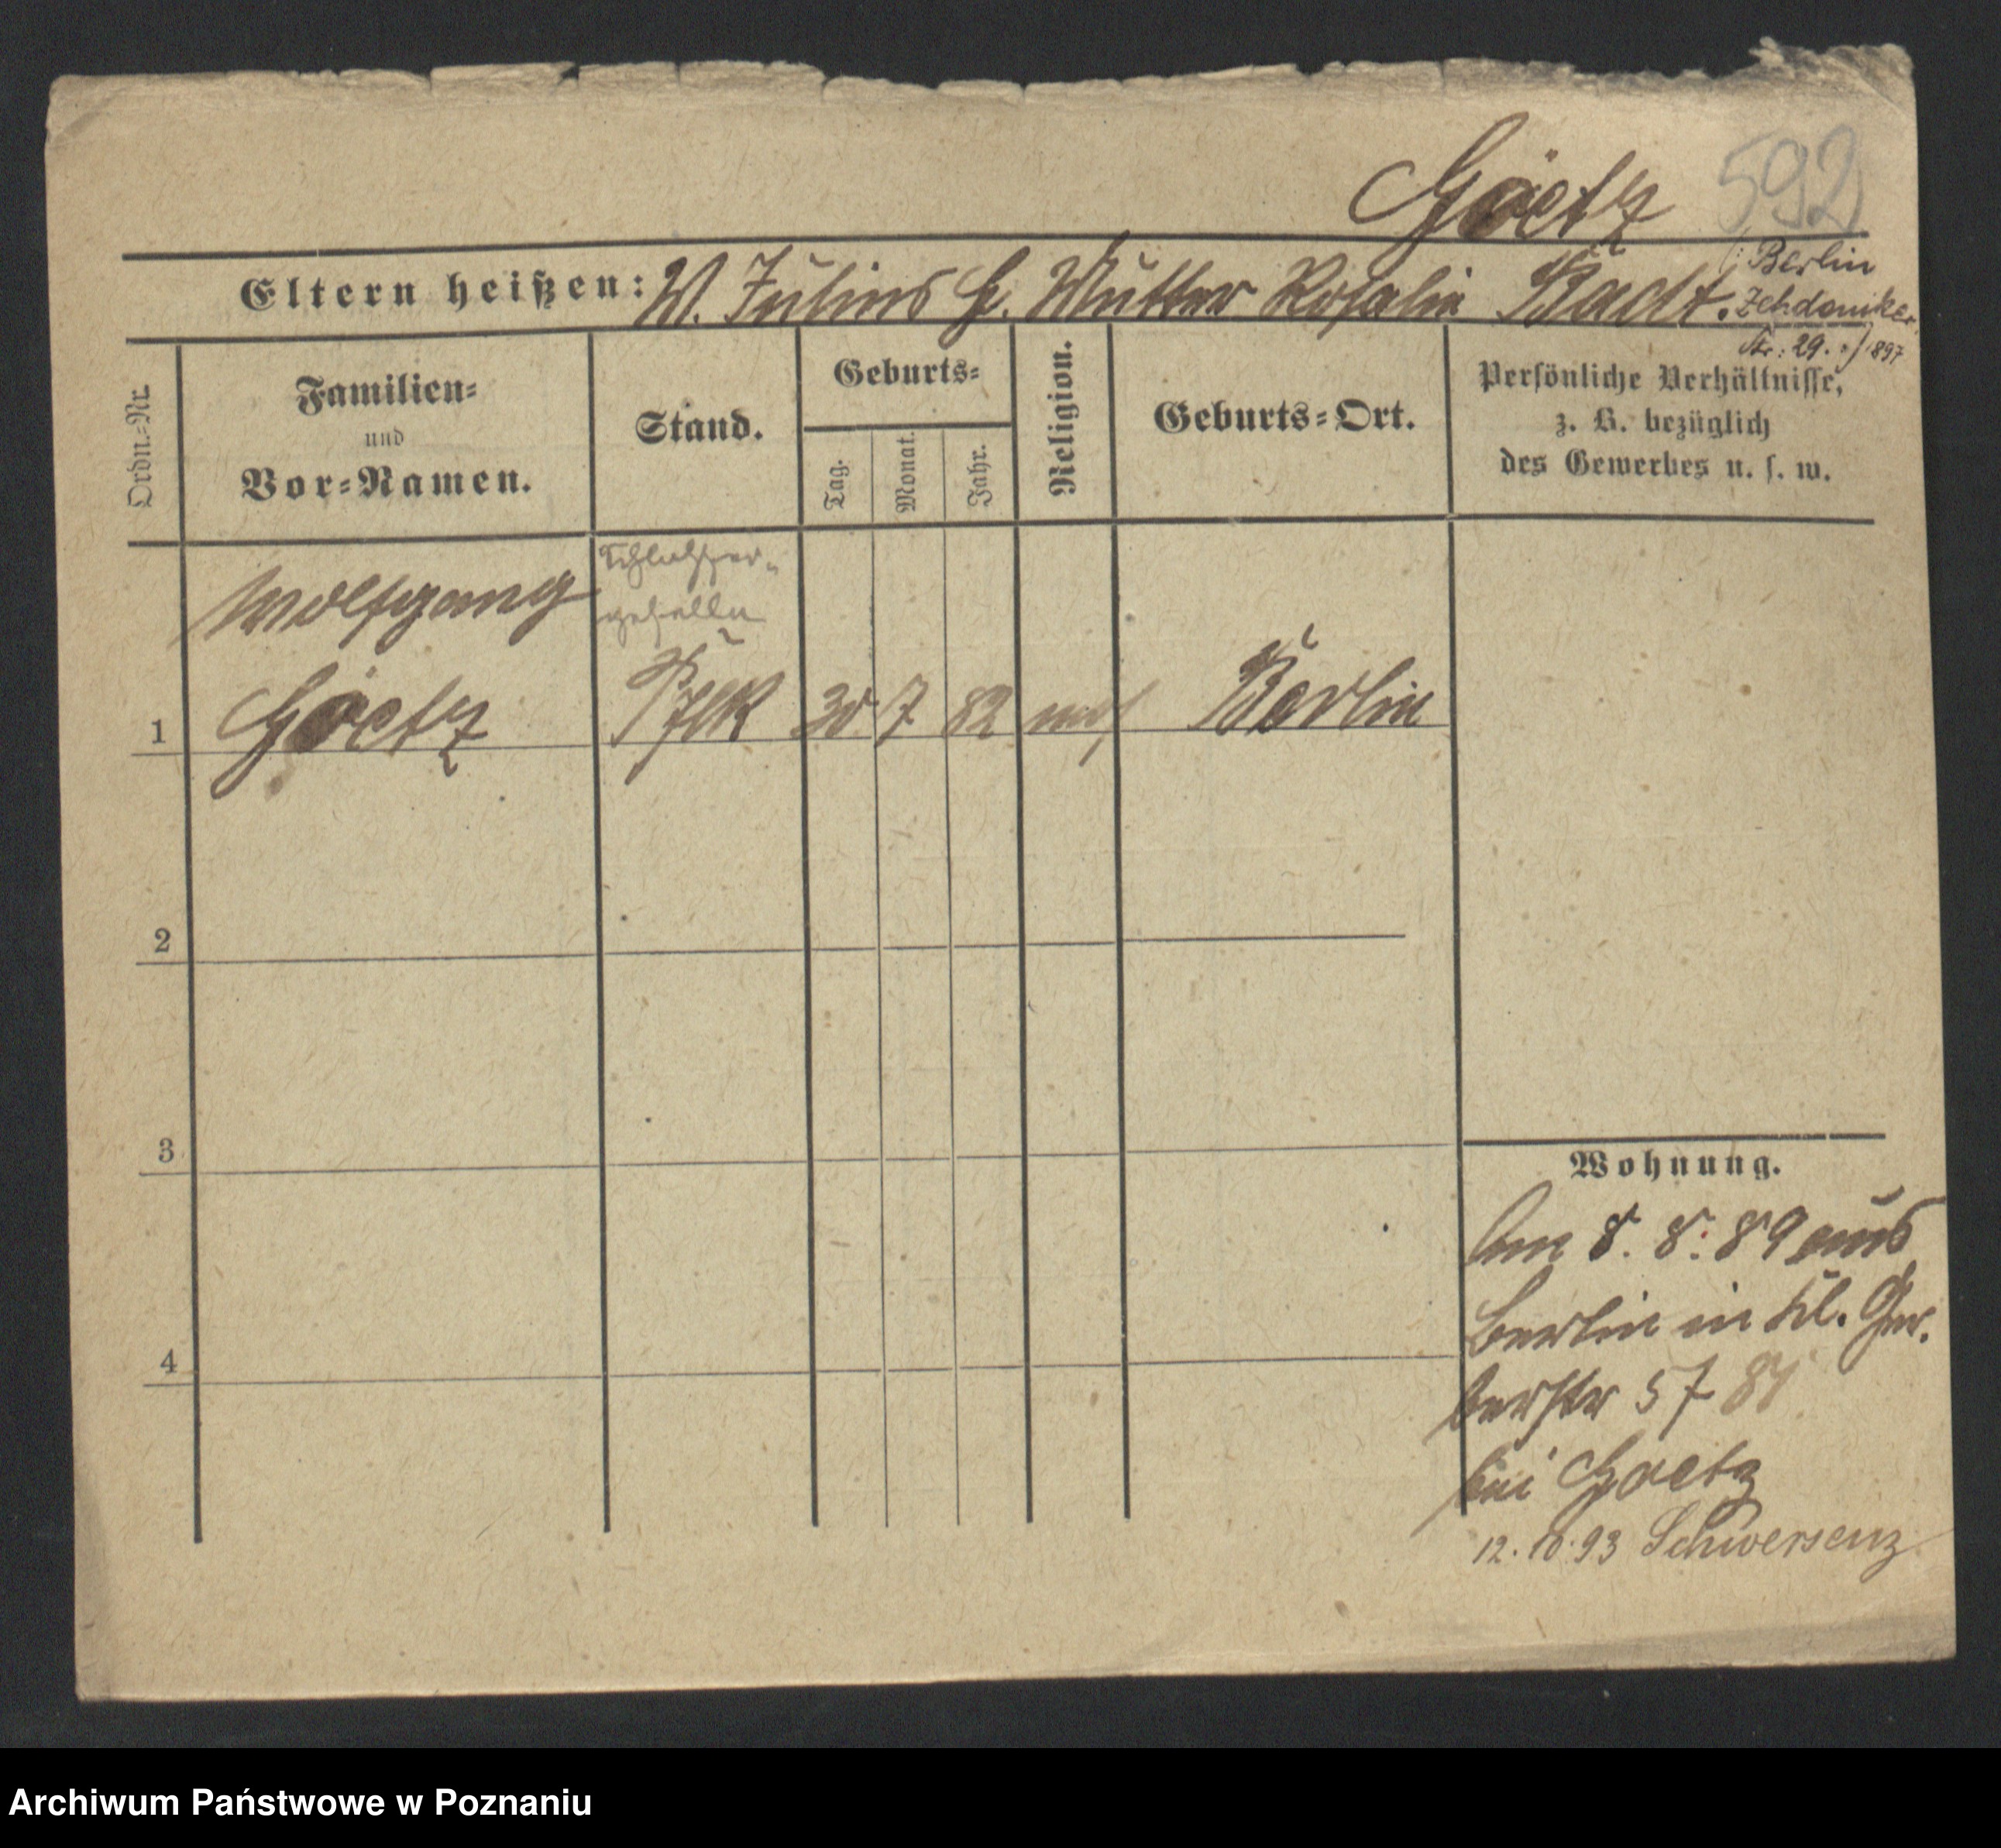 Goetz 592
Eltern heißen: V. Julius G. Mutter Rosalie Badt. (: Berlin
Zehdeniker
Str: 29. :) 1897
Ordn.-Nr.
Familien-
und
Vor-Namen.
Stand.
Geburts-
Tag.
Monat.
Jahr.
Religion.
Geburts-Ort.
Persönliche Verhältnisse,
z. B. bezüglich
des Gewerbes u. s. w.
Wolfgang
geselle
1 Goetz Pflk 30 7 82 mos Berlin
2
3
4
Wohnung.
Am 8. 8. 89 aus
Berlin in Kl. Ger-
berstr 57
bei Goetz
12.10.93 Schwersenz
Archiwum Państwowe w Poznaniu